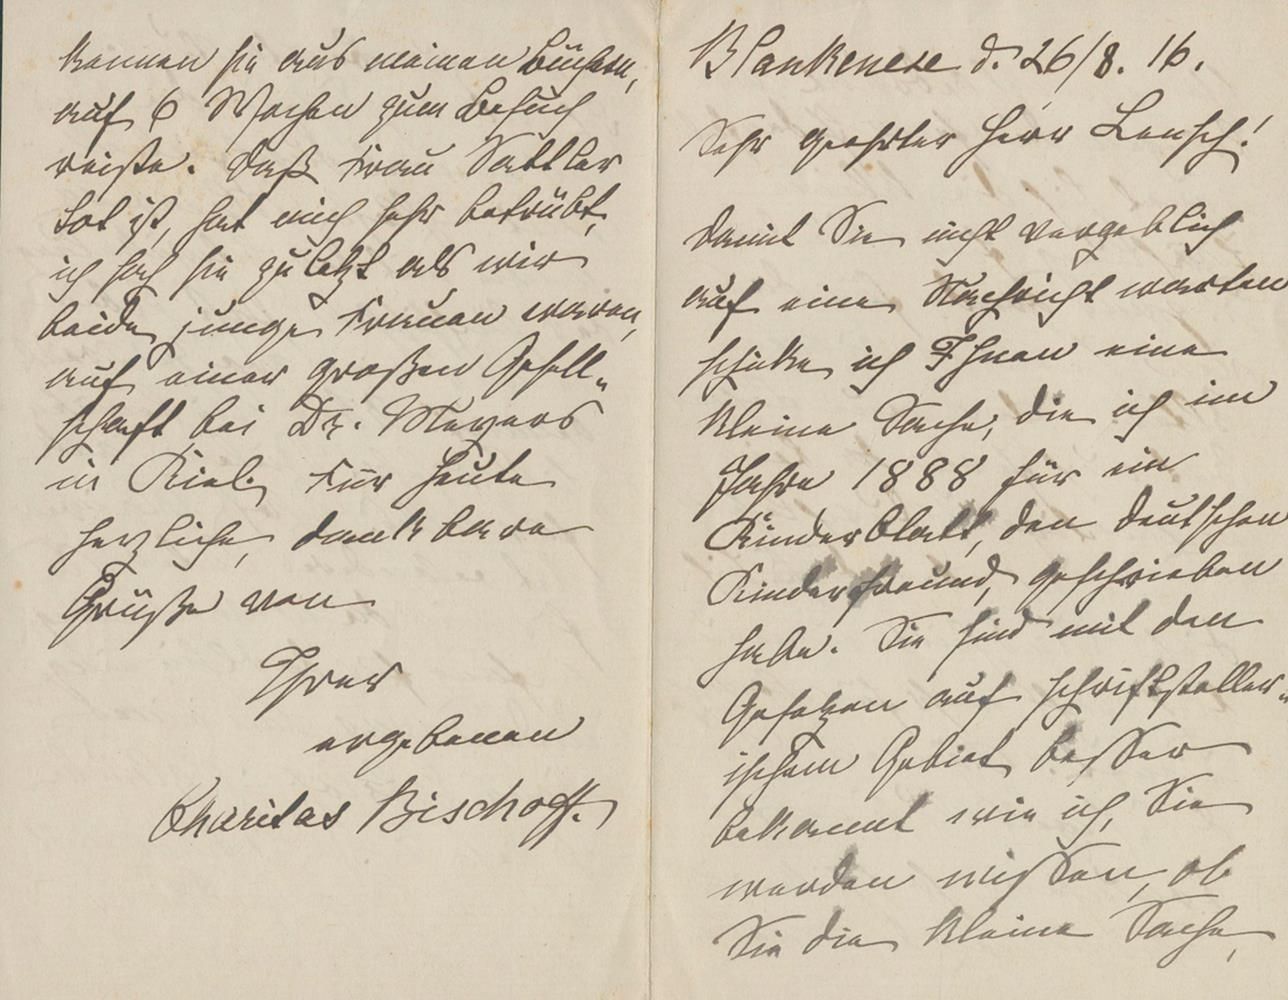 Blankenese d. 26/8. 16.
Sehr geehrter Herr Lensch!
Damit Sie nicht vergeblich
auf eine Nachricht warten
schicke ich Ihnen eine
kleine Sache, die ich im
Jahre 1888 für ein
Kinderblatt, den deutschen
Kinderfreund, geschrieben
habe. Sie sind mit den
Gesetzen auf schriftsteller-
ischem Gebiet besser
bekannt wie ich, Sie
werden wissen, ob
Sie die kleine Sache,
kennen sie aus meinen Büchern,
auf 6 Wochen zum Besuch
reiste. Daß Frau Sattler
tot ist, hat mich sehr betrübt,
ich sah sie zuletzt als wir
beide junge Frauen waren,
auf einer großen Gesell-
schaft bei Dr. Meyers
in Kiel. Für heute
herzliche, dankbare
Grüße von
Ihrer
ergebenen
Charitas Bischoff.